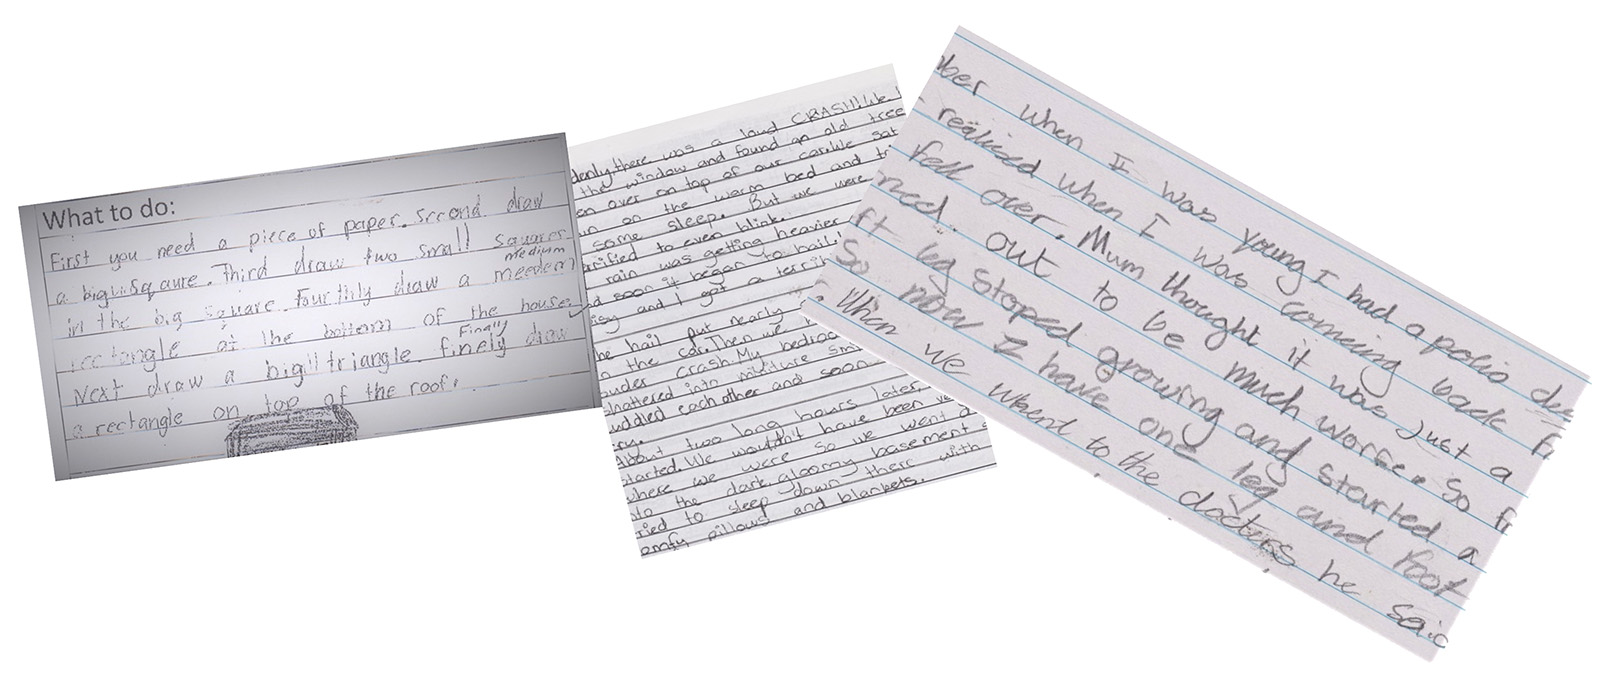 What to do:
First you need a piece of paper. Second draw
a big square. Third draw two small squares
in the big square. Fourthly draw a meedem medium
rectangle at the bottom of the house.
Next draw a big triangle. finely Finally draw
a rectangle on top of the roof.
denly there was a loud CRASH! We
the window and found an old tree
en over on top of our car. We sat
on the warm bed and
some sleep. But we were
rrified to even blink.
rain was getting heavier
nd soon it began to hail!
and I got a terri
he hail put nearly
n the car. Then we
ouder crash. My bedroo
hattered into
uddled each other and soon
About two long hours later,
started. We wouldn't have been
where we were so we went
to the dark, gloomy basement
ried to sleep down there with
omfy pillows and blankets.
ber when I was young I had a polio
realised when I was comeing back
fell over. Mum thought it was just a
nced. out to be much worse. So
ft leg stoped growing and started a
So now I have one leg and foot
When we whent to the docters he saic